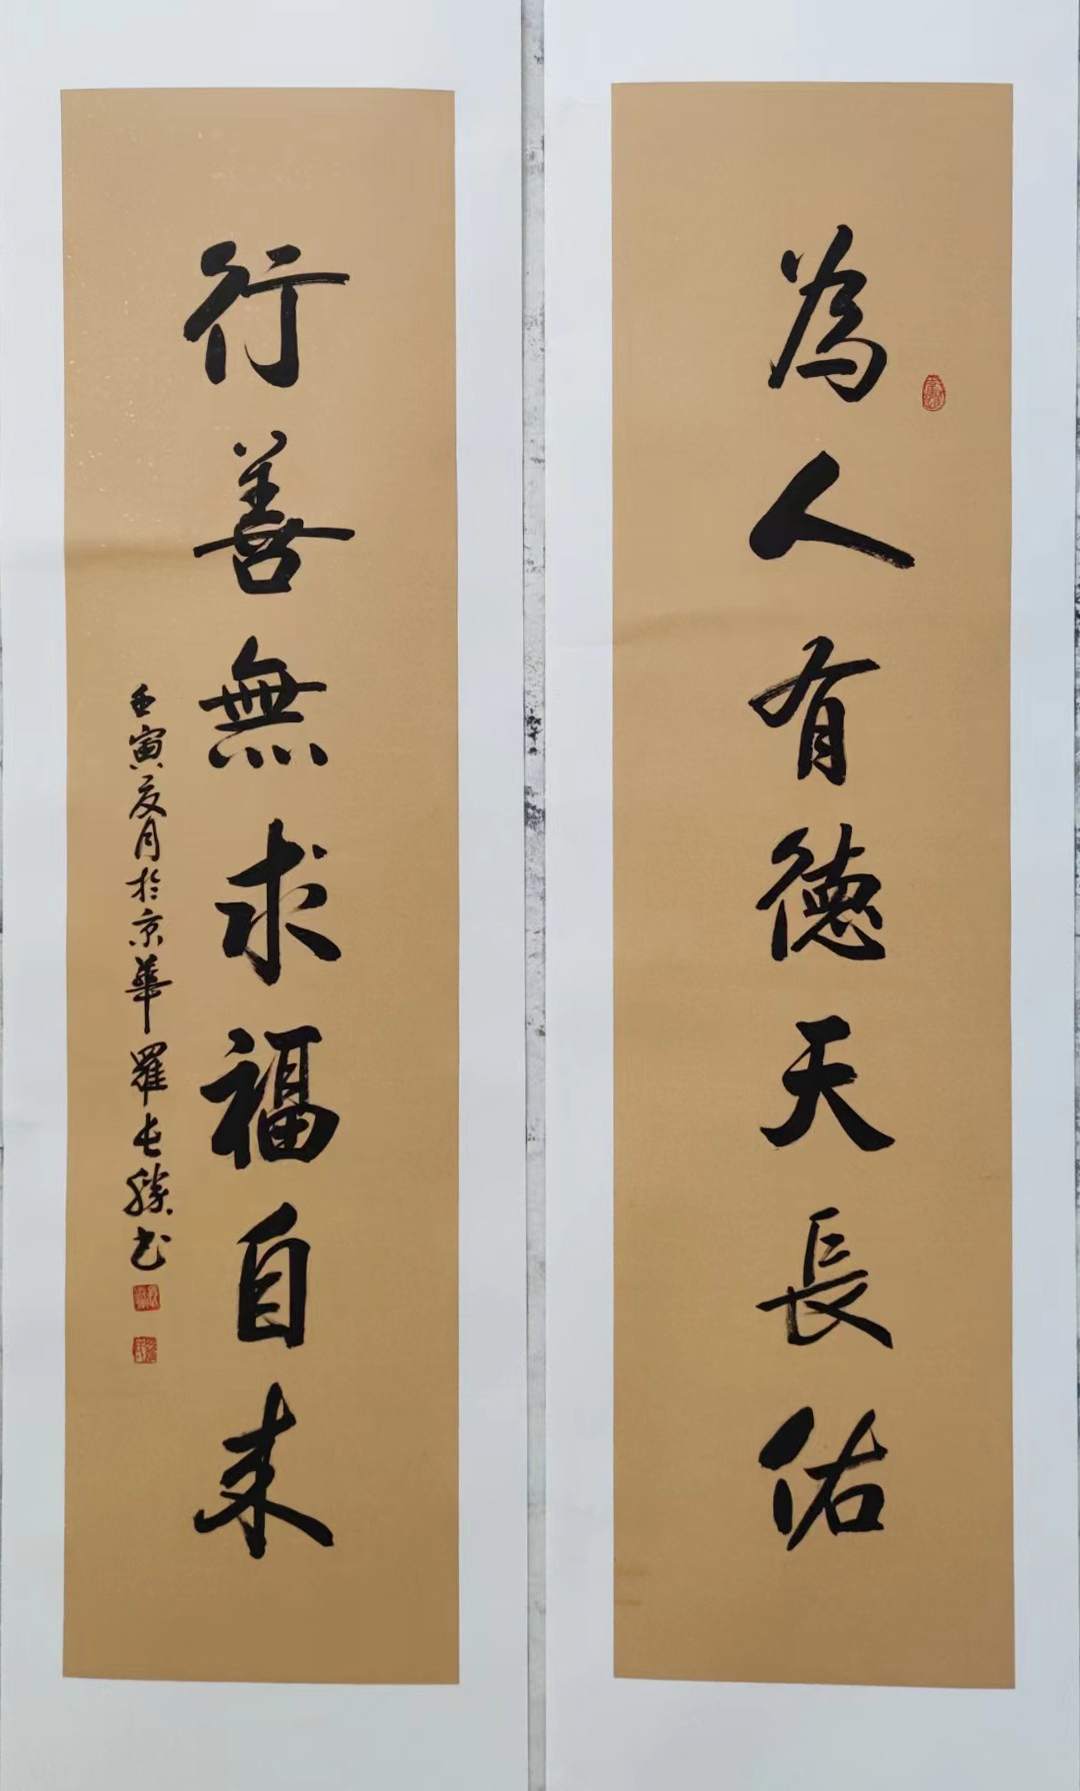 為人有德天長佑
行善無求福自来
壬寅夏月於京華羅长勝书